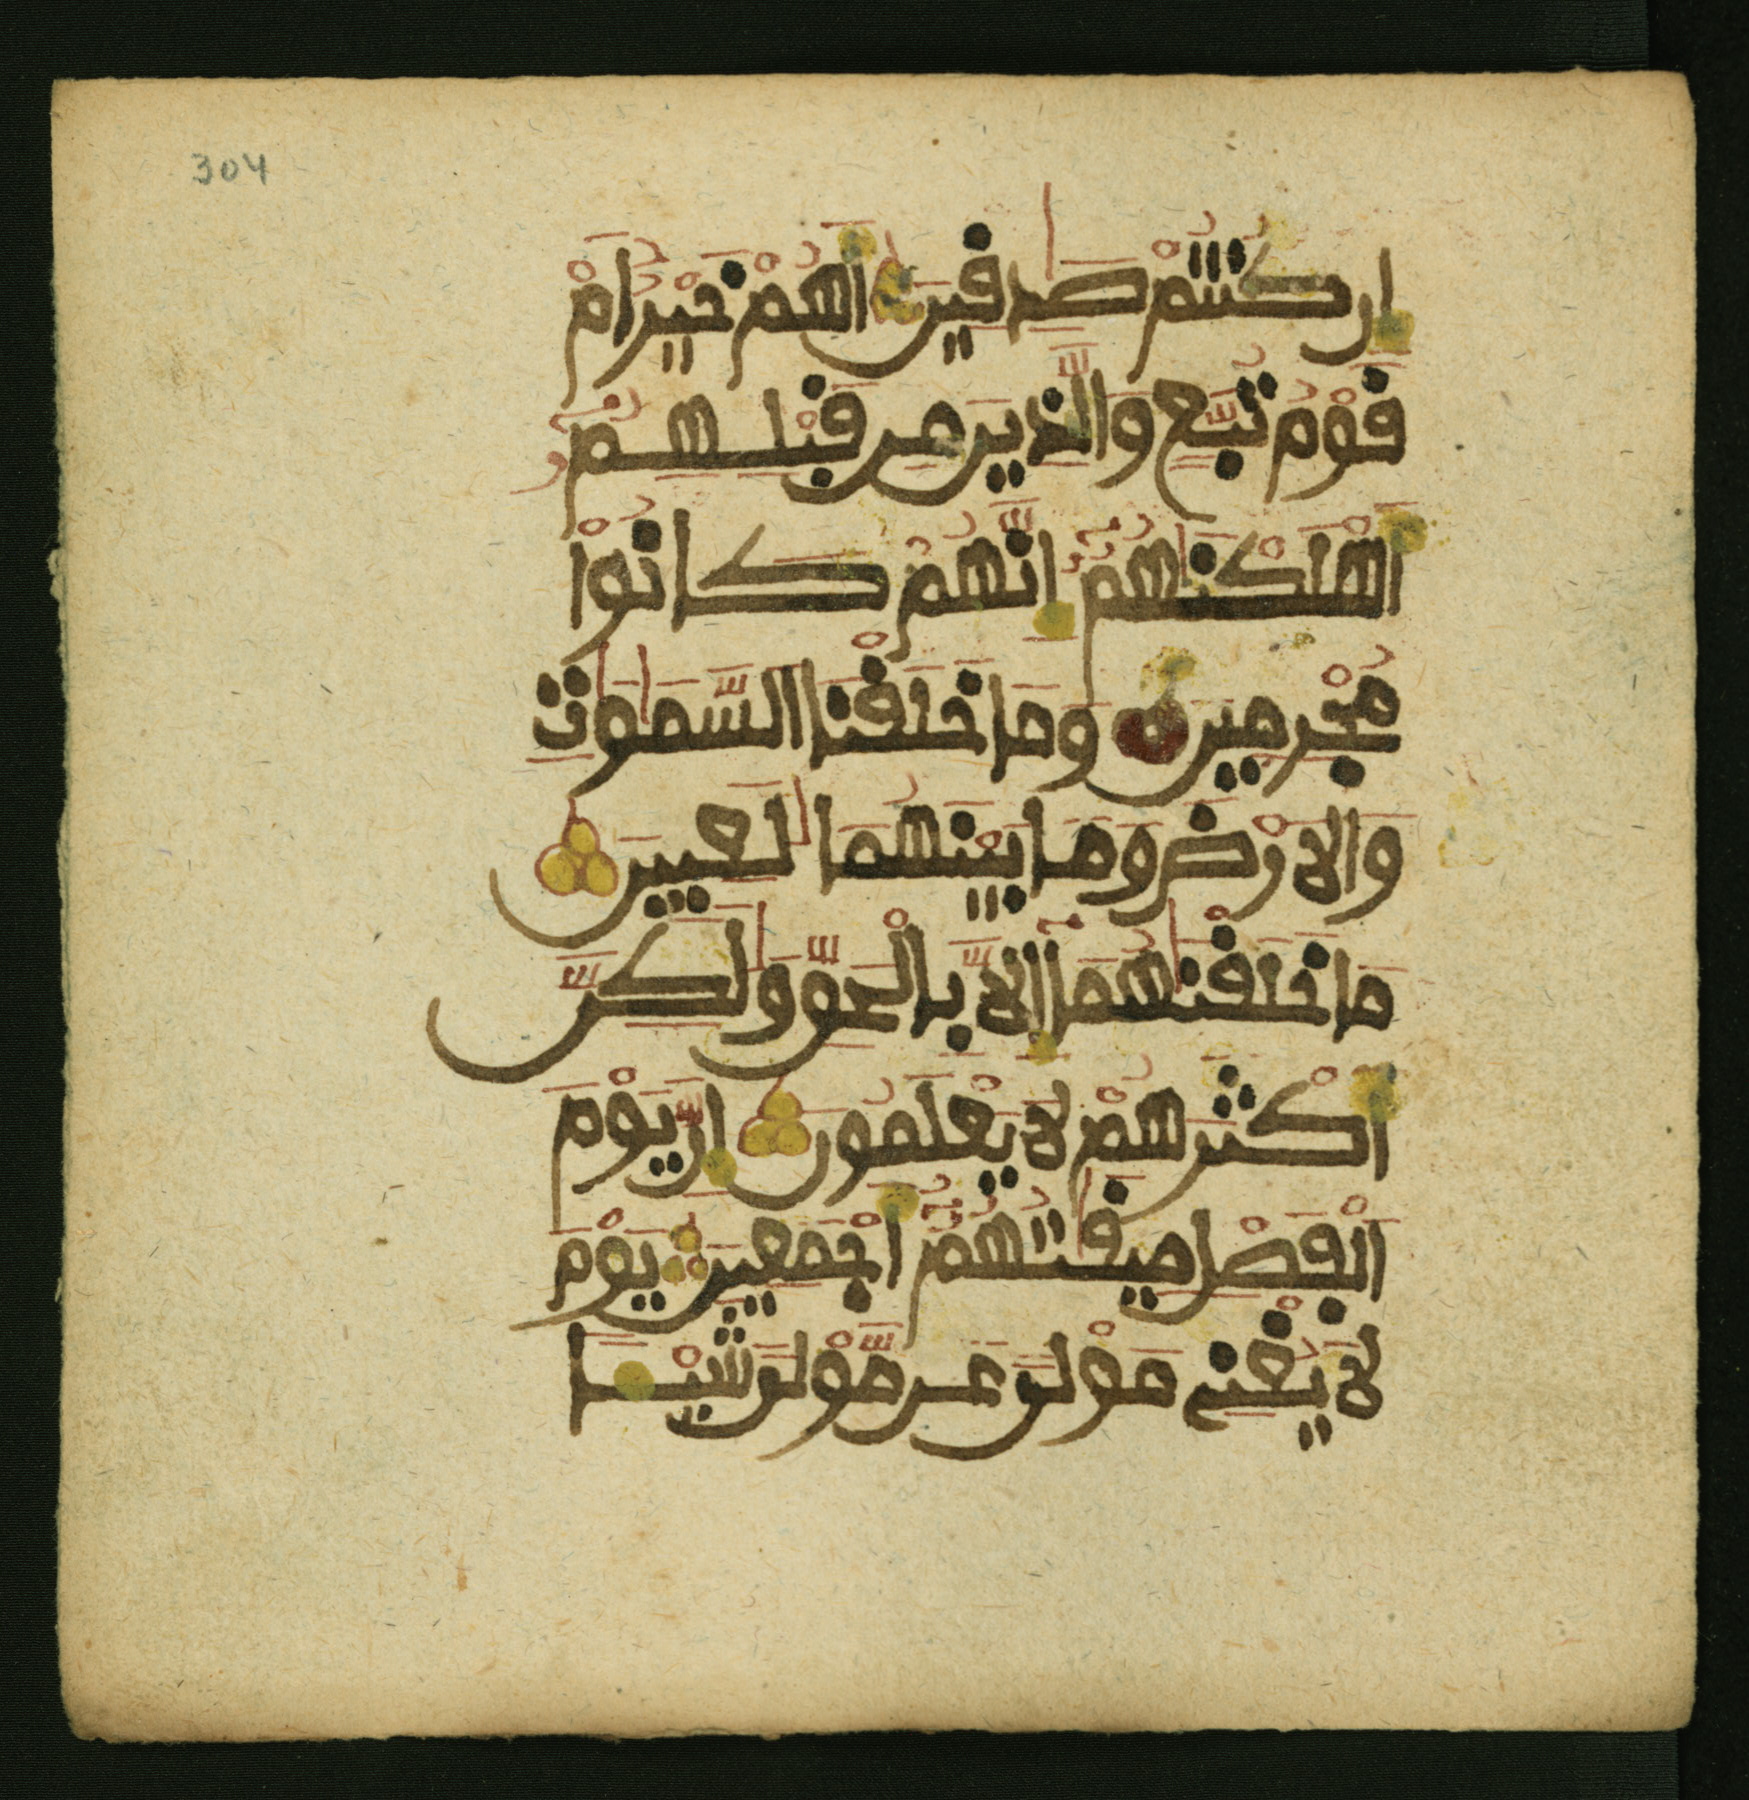 304
إن كُنتُمْ صَٰدِقِينَ أَهُمْ خَيْرٌ أَمْ
قَوْمُ تُبَّعٍ وَالَّذِينَ مِن قَبْلِهِمُ
أَهْلَكْنَٰهُمُ إِنَّهُمْ كَانُوا
مُجْرِمِينَ وَمَا خَلَقْنَا السَّمَٰوَٰتِ
وَالاَرْضَ وَمَا بَيْنَهُمَا لَٰعِبِينَ
مَا خَلَقْنَٰهُمَا إِلاَّ بِالْحَقِّ وَلَٰكِنَّ
أَكْثَرَهُمْ لاَ يَعْلَمُونَ إِنَّ يَوْمَ
الْفَصْلِ مِيقَٰتُهُمُ أَجْمَعِينَ يَوْمَ
لاَ يُغْنِي مَوْلىً عَن مَّوْلىً شَيْـًٔا